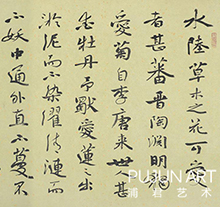 水陸草木之花可愛
者甚蕃晋陶淵明獨
愛菊自李唐来世人甚
愛牡丹予獨愛蓮之出
淤泥而不染濯清漣而
不妖中通外直不蔓不
PUJUN ART
浦君艺术